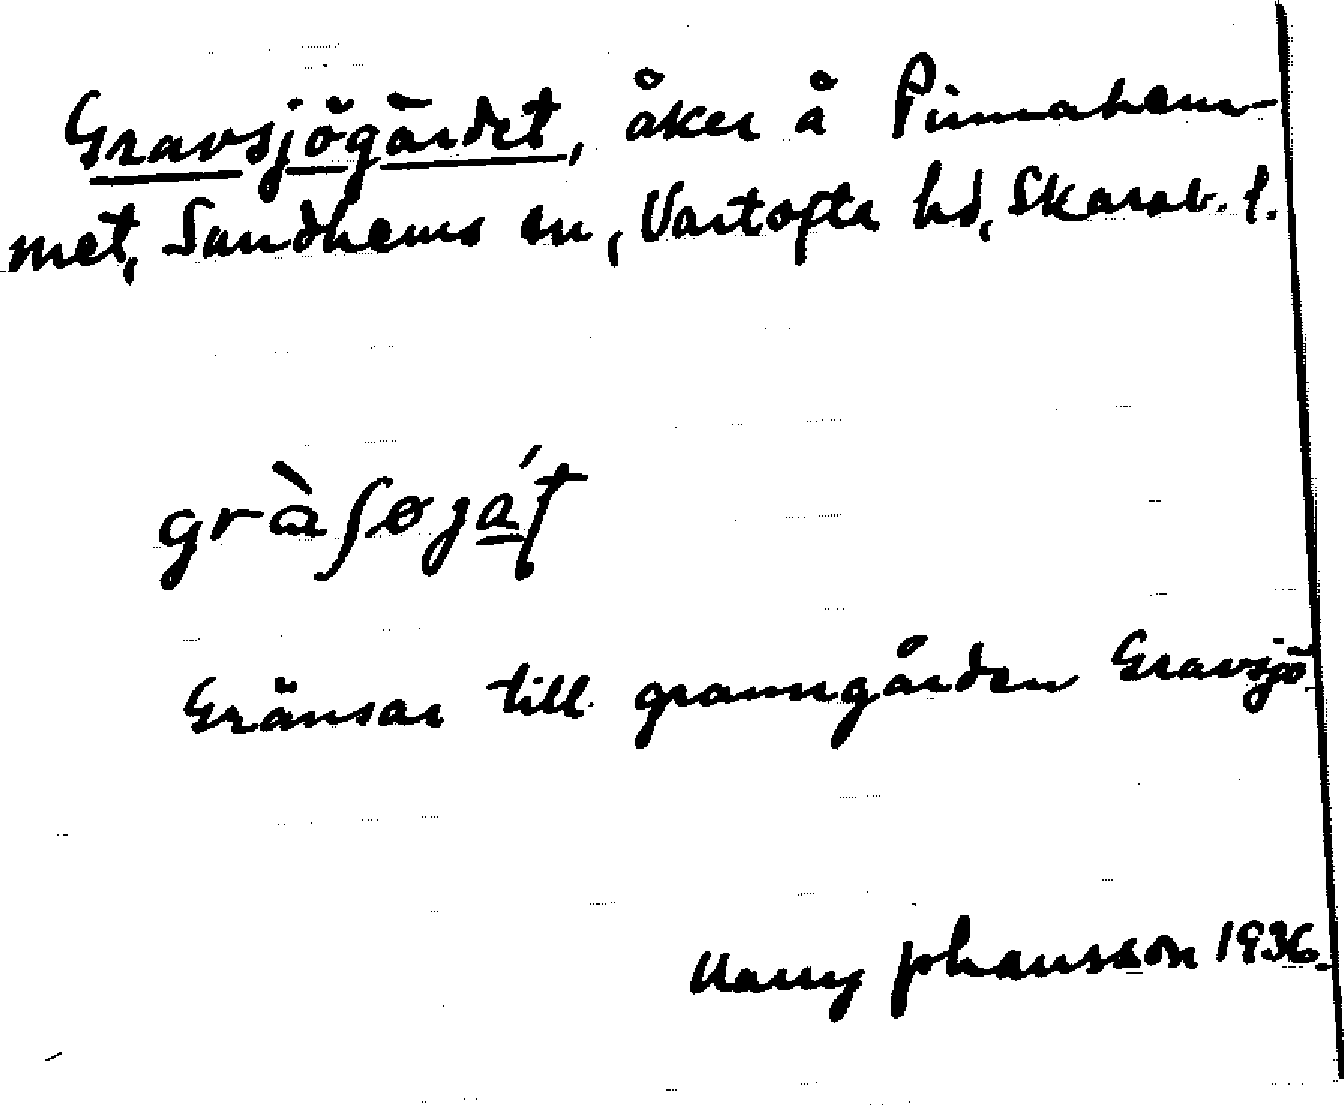 Gravsjögärdet, åker å Pinnahem-
met, Sandhems sn, Vartofta hd, Skarab. l.
gràʃøját
Gränsar till granngården Gravsjö
Harry Johansson 1936.